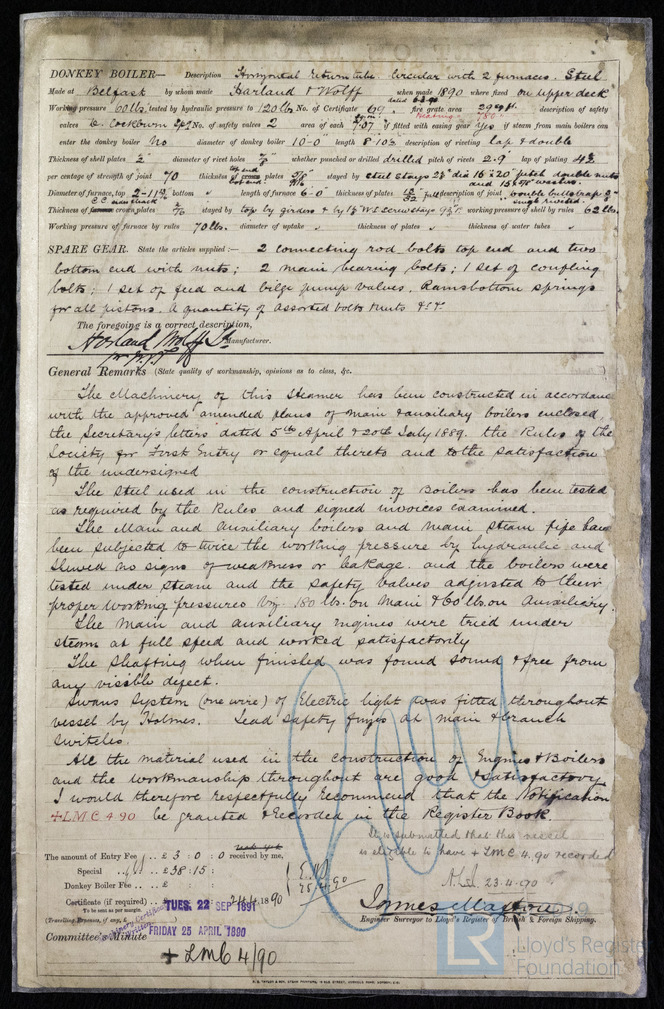 DONKEY BOILER— Description Horizontal Return tube. Circular with 2 furnaces. Steel
Made at Belfast by whom made Harland & Wolff when made 1890 where fixed on upper deck
Working pressure 60 lbs. tested by hydraulic pressure to 120 lbs No. of Certificate 69 dated fire grate area 29 sq. ft. description of safety
valves No. of safety valves 2 area of each 7.07 if fitted with easing gear yes if steam from main boilers can
enter the donkey boiler No diameter of donkey boiler 10-0 length 8-10½ description of riveting lap & double
Thickness of shell plates diameter of rivet holes whether punched or drilled drilled pitch of rivets 2.9" lap of plating
per centage of strength of joint 70 thickness of plates stayed by steel stays pitch double nuts
and washers.
Diameter of furnace, top bottom length of furnace 6-0 thickness of plates description of joint double buttstrap
single riveted.
Thickness of crown plates stayed by top by girders & by screw stays working pressure of shell by rules 62 lbs.
Working pressure of furnace by rules 70 lbs. diameter of uptake thickness of plates thickness of water tubes
SPARE GEAR. State the articles supplied :— 2 connecting rod bolts top end and two
bottom end with nuts; 2 main bearing bolts; 1 set of coupling
bolts; 1 set of feed and bilge pump valves, Ramsbottom springs
for all pistons. A quantity of assorted bolts nuts &c &c.
The foregoing is a correct description,
Harland Wolff Ld Manufacturer.
General Remarks (State quality of workmanship, opinions as to class, &c.
The Machinery of this Steamer has been constructed in accordance
with the approved amended plans of main & auxiliary boilers enclosed,
the Secretary's letters dated 5th April & 20th July 1889. the Rules of the
Society for First Entry or equal thereto and to the satisfaction
of the undersigned
The Steel used in the construction of Boilers has been tested
as required by the Rules and signed invoices examined.
The Main and Auxiliary boilers and main steam pipe have
been subjected to twice the working pressure by hydraulic and
shewed no signs of weakness or leakage. and the boilers were
tested under steam and the safety valves adjusted to their
proper working pressures viz. 180 lbs. on Main & 60 lbs. on Auxiliary.
The Main and auxiliary engines were tried under
steam at full speed and worked satisfactorily
The Shafting when finished was found sound & free from
any visible defect.
Swans System (one wire) of Electric light was fitted throughout
vessel by Holmes. Lead safety fuzes at main & branch
switches.
All the material used in the construction of Engines & Boilers
and the workmanship throughout are good & satisfactory
I would therefore respectfully recommend that the Notification
+LMC 4.90 be granted & recorded in the Register Book.
It is submitted that this vessel
is eligible to have + LMC 4.90 recorded
23.4.90
The amount of Entry Fee .. £ 3 : 0 : 0 received by me,
Special .. £ 38 : 15 :
Donkey Boiler Fee .. £
Certificate (if required) .. 1890
25.4.90
To be sent as per margin.
(Travelling Expenses, if any, £
TUES. 22 SEP 1891
James Maxton
Engineer Surveyor to Lloyd's Register of British & Foreign Shipping.
Committee's Minute
FRIDAY 25 APRIL 1890
+ LMC 4/90
LR Lloyd's Register
Foundation